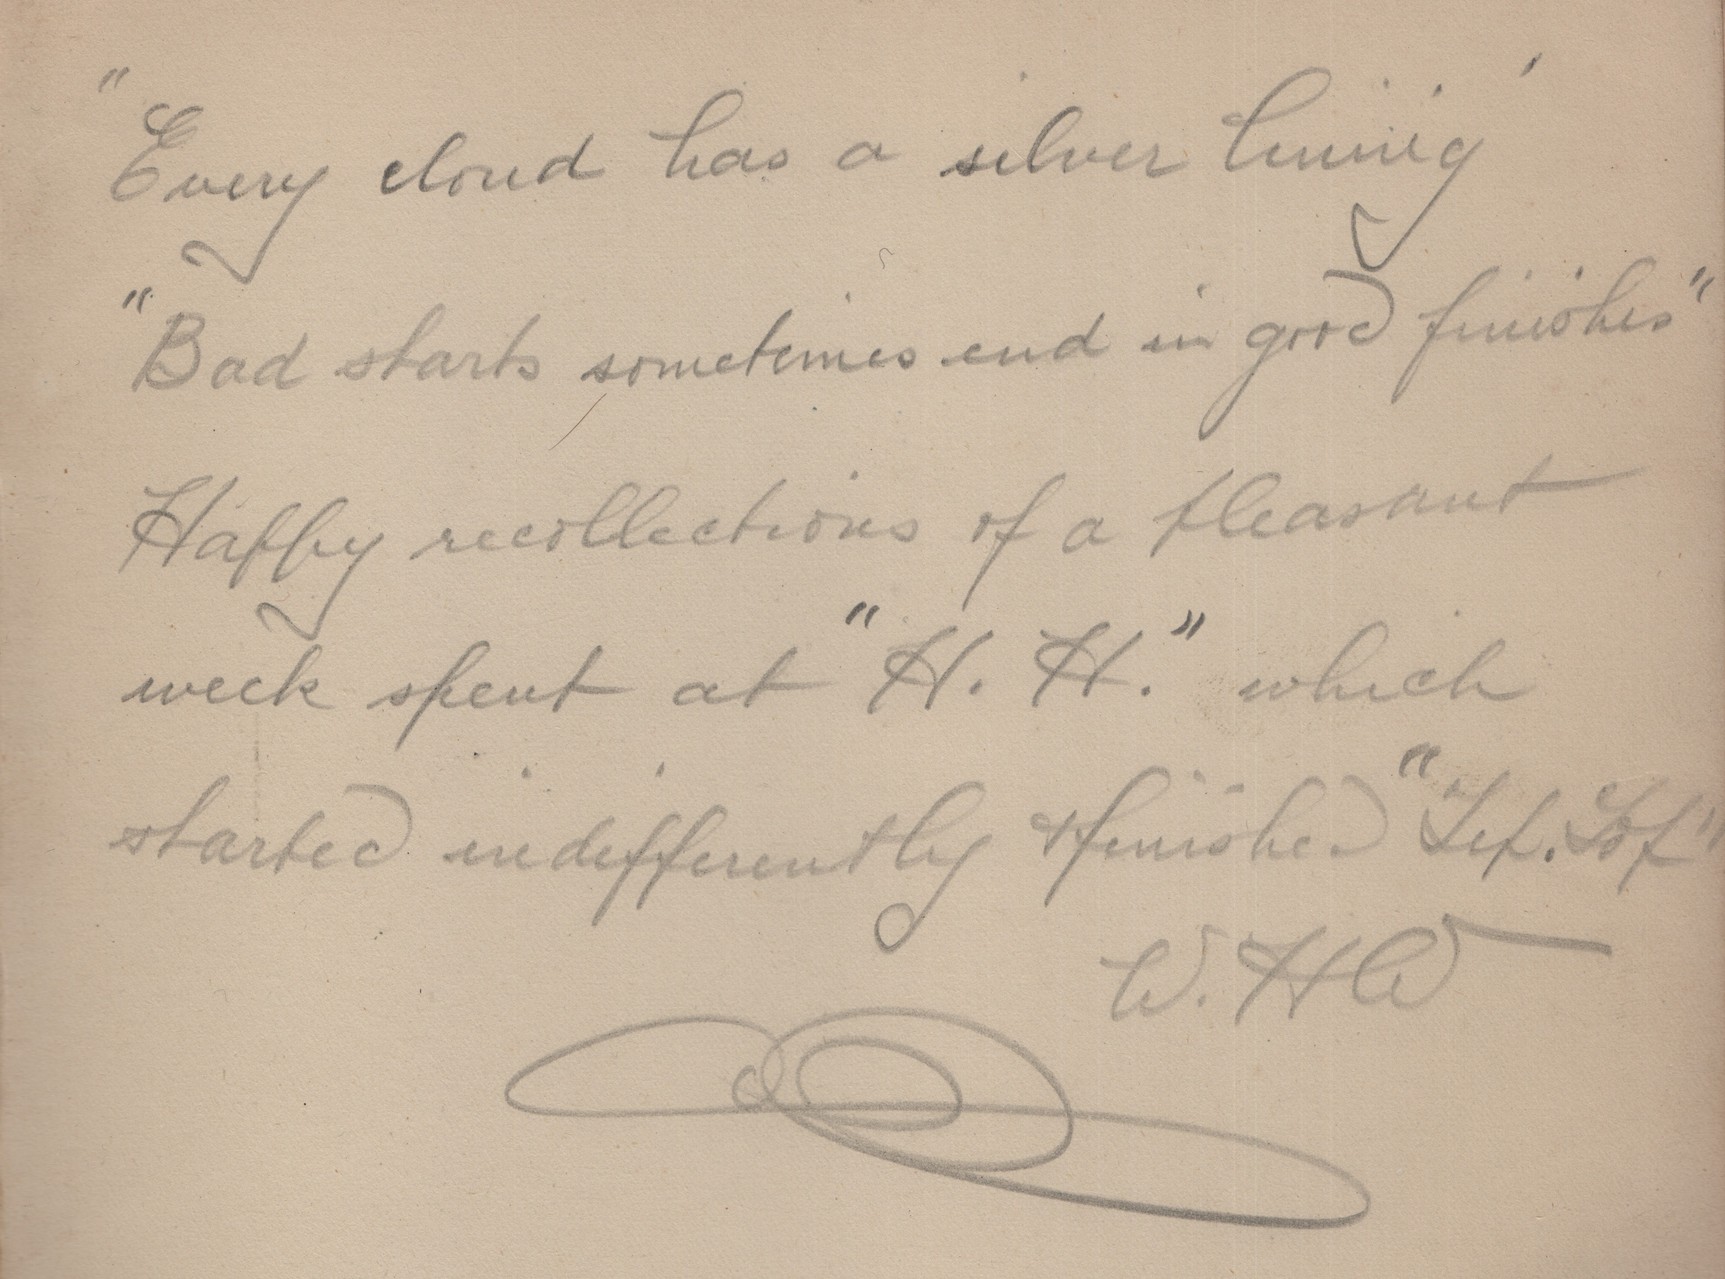 "Every cloud has a silver lining'
"Bad starts sometimes end in good finishes"
Happy recollections of a pleasant
week spent at "H. H." which
started indifferently & finished "Tip. Top"
W. H W